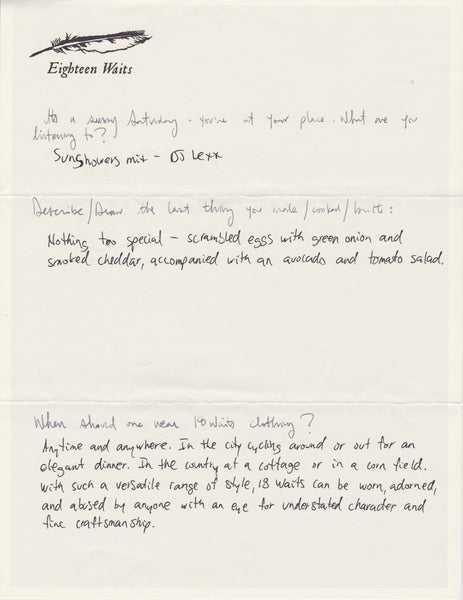 Eighteen Waits
It's a sunny Saturday - you're at your place. What are you
listening to?
Sunshowers mix - DJ Lexx
Describe/Draw the last thing you made/cooked/built:
Nothing too special - scrambled eggs with green onion and
smoked cheddar, accompanied with an avocado and tomato salad.
When should one wear 18 Waits clothing?
Anytime and anywhere. In the city cycling around or out for an
elegant dinner. In the country at a cottage or in a corn field.
With such a versatile range of style, 18 Waits can be worn, adorned,
and abused by anyone with an eye for understated character and
fine craftsmanship.